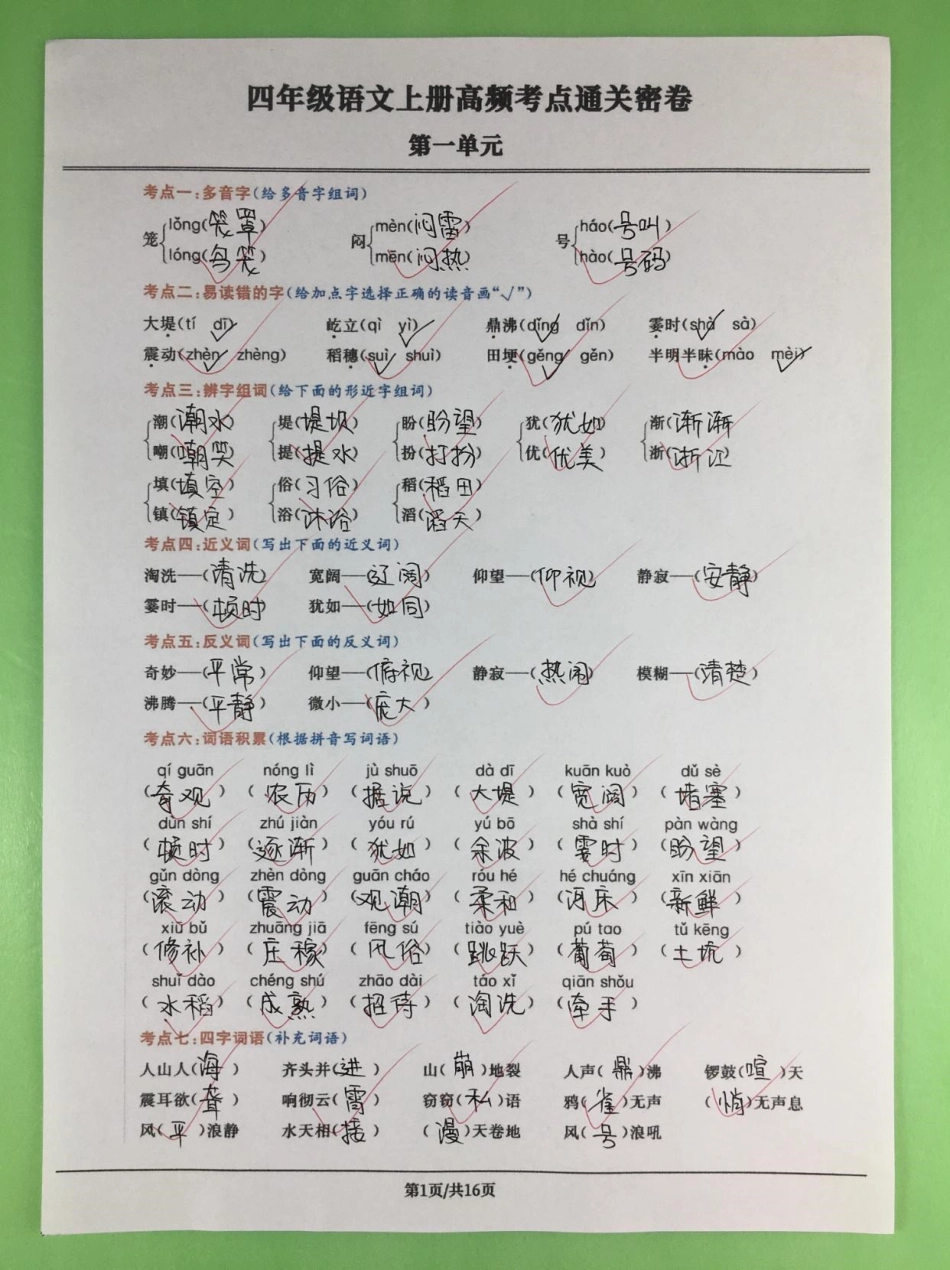 四年级语文上册高频考点通关密卷
第一单元
考点一:多音字(给多音字组词)
笼{lǒng(笼罩) lóng(鸟笼) 闷{mèn(闷雷) mēn(闷热) 号{háo(号叫) hào(号码)
考点二:易读错的字(给加点字选择正确的读音画“✓”)
大堤(tí dī✓) 屹立(qì yì✓) 鼎沸(dǐng✓ dǐn) 霎时(shà✓ sà)
震动(zhèn✓ zhèng) 稻穗(suì✓ shuì) 田埂(gěng✓ gěn) 半明半昧(mào mèi✓)
考点三:辨字组词(给下面的形近字组词)
潮(潮水) 堤(堤坝) 盼(盼望) 犹(犹如) 渐(渐渐)
嘲(嘲笑) 提(提水) 扮(打扮) 优(优美) 浙(浙江)
填(填空) 俗(习俗) 稻(稻田)
镇(镇定) 浴(沐浴) 滔(滔天)
考点四:近义词(写出下面的近义词)
淘洗——(清洗) 宽阔——(辽阔) 仰望——(仰视) 静寂——(安静)
霎时——(顿时) 犹如——(如同)
考点五:反义词(写出下面的反义词)
奇妙——(平常) 仰望——(俯视) 静寂——(热闹) 模糊——(清楚)
沸腾——(平静) 微小——(庞大)
考点六:词语积累(根据拼音写词语)
qí guān nóng lì jù shuō dà dī kuān kuò dǔ sè
(奇观) (农历) (据说) (大堤) (宽阔) (堵塞)
dùn shí zhú jiàn yóu rú yú bō shà shí pàn wàng
(顿时) (逐渐) (犹如) (余波) (霎时) (盼望)
gǔn dòng zhèn dòng guān cháo róu hé hé chuáng xīn xiān
(滚动) (震动) (观潮) (柔和) (河床) (新鲜)
xiū bǔ zhuāng jiā fēng sú tiào yuè pú tao tǔ kēng
(修补) (庄稼) (风俗) (跳跃) (葡萄) (土坑)
shuǐ dào chéng shú zhāo dài táo xǐ qiān shǒu
(水稻) (成熟) (招待) (淘洗) (牵手)
考点七:四字词语(补充词语)
人山人(海) 齐头并(进) 山(崩)地裂 人声(鼎)沸 锣鼓(喧)天
震耳欲(聋) 响彻云(霄) 窃窃(私)语 鸦(雀)无声 (悄)无声息
风(平)浪静 水天相(接) (漫)天卷地 风(号)浪吼
第1页/共16页